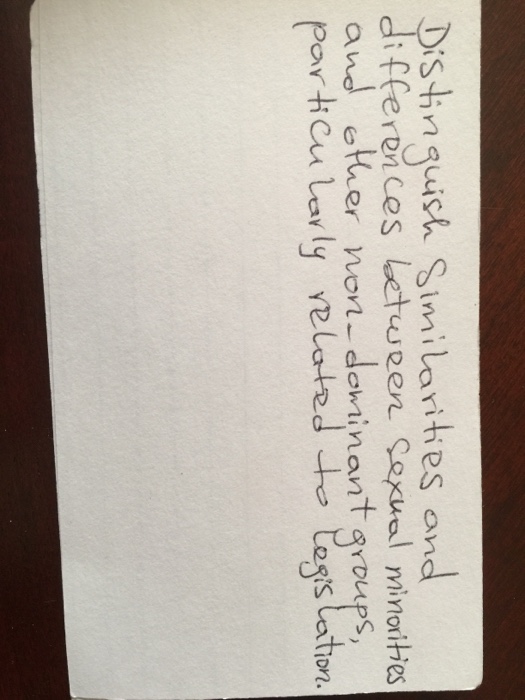 Distinguish Similarities and
differences between sexual minorities
and other non-dominant groups,
particularly related to legislation.